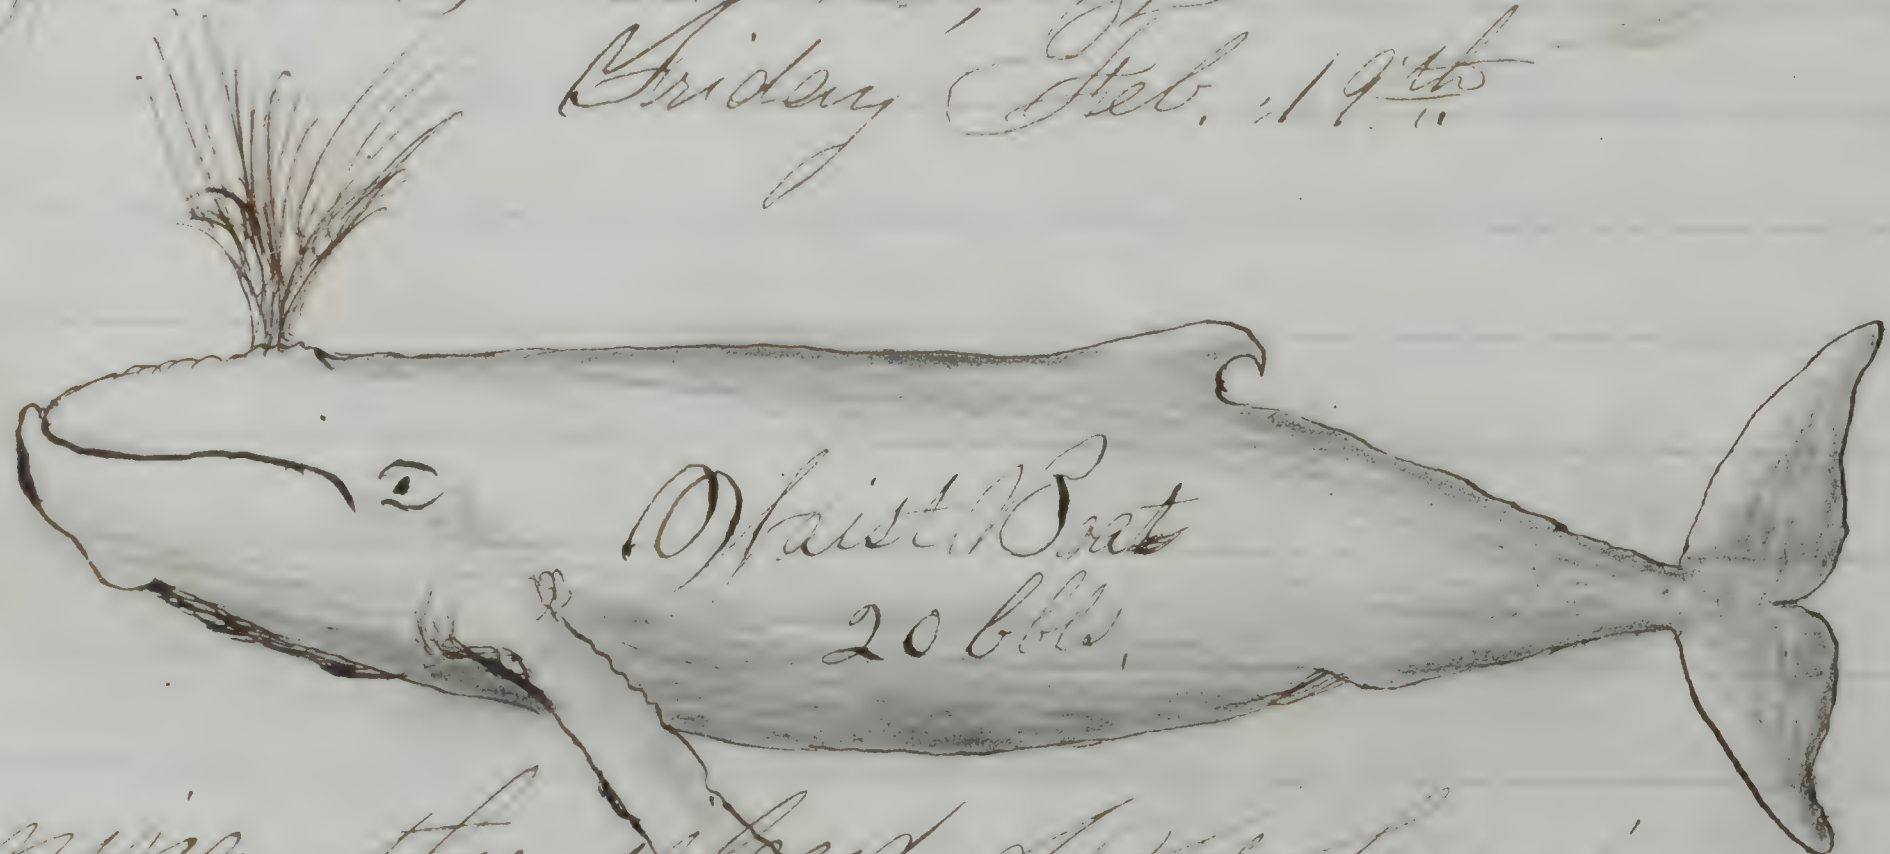 Friday Feb. 19th
Waist Boat
20 bbls.
the